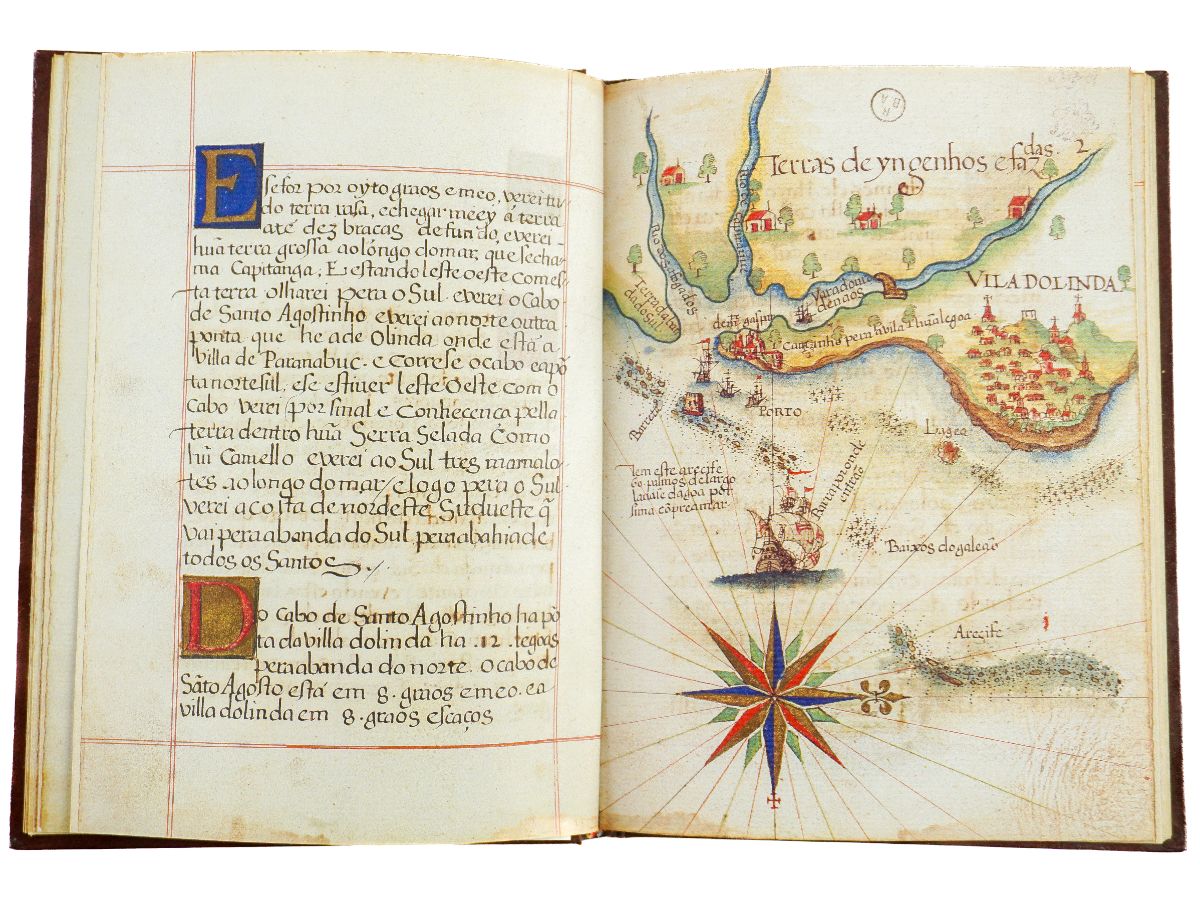 E se for por oyto graos e meo, verei tu-
do terra rasa, e chegar me ey á terra
até dez bracas de fundo, e verei
huã terra grossa ao lóngo do mar, que se cha-
ma Capitanga; E estando leste oeste com es-
ta terra olharei pera o Sul e verei o Cabo
de Santo Agostinho e verei ao norte outra
ponta que he a de Olinda onde está a
villa de Paranabuc. e córrese o cabo e a põ
ta norte sul, e se estiver leste Oeste com o
Cabo verei por sinal e Conhecença pella
terra dentro huã Serra Selada Como
hũ Camello e verei ao Sul tres mamalo-
tes ao longo do mar, e logo pera o Sul
verei a costa de nordeste Sudueste q̃
vai pera a banda do Sul. pera a bahia de
todos os Santos
Do cabo de Santo Agostinho há põ
ta da villa dolinda ha .12. legoas
pera a banda do norte. O cabo de
Sãto Agosto está em 8. graos e meo. e a
villa dolinda em 8. graos escaços
R
B A
Terras de yngenhos e faz das. 2
Rio dos afogados
VILA DOLINDA
Varadouro
denaos
Caminho pera ha vila e huã legoa
PORTO
Lagea
Tem este arecife
60 palmos de largo
Barra por onde
entrão
Baixos do galeão
Areçife